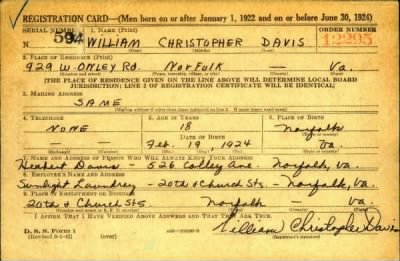 REGISTRATION CARD—(Men born on or after January 1, 1922 and on or before June 30, 1924)
SERIAL NUMBER 1. NAME (Print) ORDER NUMBER
N 594 WILLIAM CHRISTOPHER DAVIS 12295
2. PLACE OF RESIDENCE (Print)
929 W. ONLEY RD. NORFOLK — Va.
[THE PLACE OF RESIDENCE GIVEN ON THE LINE ABOVE WILL DETERMINE LOCAL BOARD
JURISDICTION; LINE 2 OF REGISTRATION CERTIFICATE WILL BE IDENTICAL]
3. MAILING ADDRESS
SAME
4. TELEPHONE 5. AGE IN YEARS 6. PLACE OF BIRTH
NONE 18 Norfolk
DATE OF BIRTH
Feb. 19, 1924 Va.
7. NAME AND ADDRESS OF PERSON WHO WILL ALWAYS KNOW YOUR ADDRESS
Herbert Davis - 526 Colley Ave - Norfolk, Va.
8. EMPLOYER'S NAME AND ADDRESS
Sunlight Laundry - 20th & Church Sts. - Norfolk, Va.
9. PLACE OF EMPLOYMENT OR BUSINESS
20th & Church Sts. Norfolk — Va.
I AFFIRM THAT I HAVE VERIFIED ABOVE ANSWERS AND THAT THEY ARE TRUE.
D. S. S. Form 1 William Christopher Davis